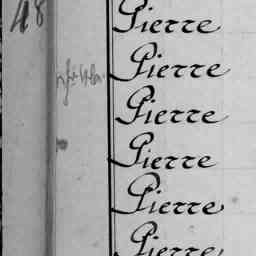 48
Pierre
Pierre
Pierre
Pierre
Pierre
Pierre